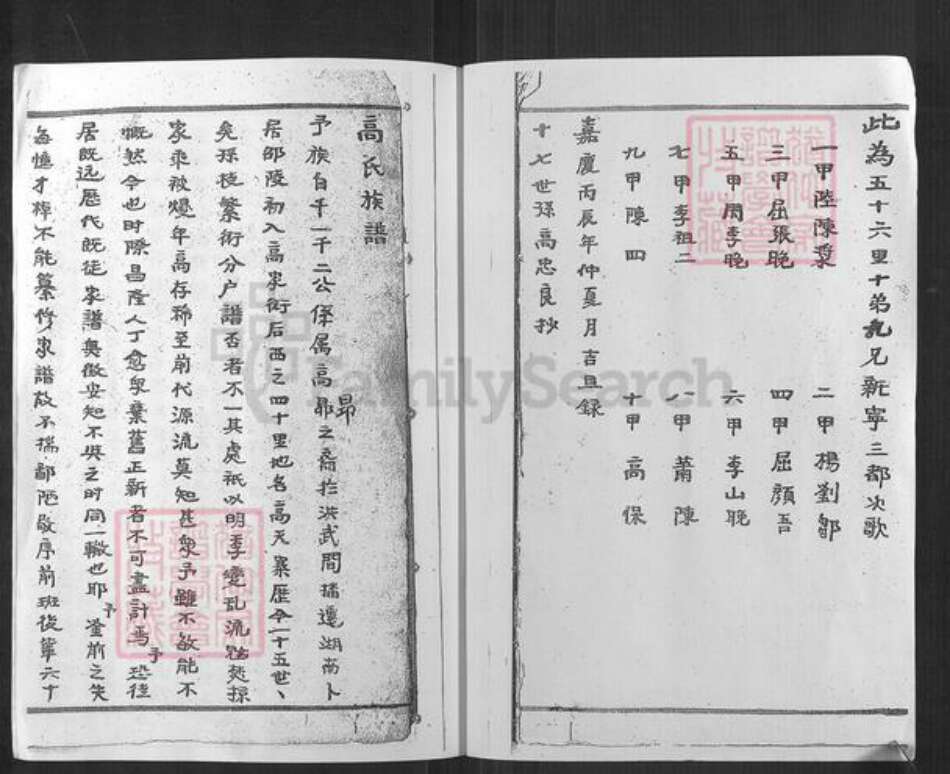 此為五十六里十弟兄新寧三都次歌
一甲陸陳蔂 二甲楊劉鄒
三甲屈張晚 四甲屈顏吾
五甲周李晚 六甲李山晚
七甲李祖二 八甲蕭陳
九甲陳四 十甲高保
嘉慶丙辰年仲夏月吉旦録
十七世孫高忠良抄
高氏族譜
予族自千一千二公係属高昴之裔於洪武間播遷湖南卜
居邵陵初入高家衖后西之四十里地名高天寨歷今一十五世、
矣孫枝繁衍分户譜否者不一其處祇以明季變乱流賊焚掠
家乘被燬年高存稀至前代源流莫知甚衆予雖不敏能不
慨然今也时際昌隆人丁愈衆棄舊正新者不可盡計焉予恐往
居既远歷代既徒家譜無徵安知不與之时同一轍也耶予鉴前之失
每憶才樗不能纂修家譜故不揣鄙陋敬序前班後輩六十
FamilySearch